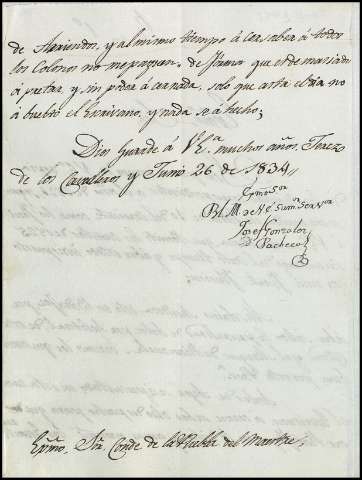 de Arriendos, y al mismo tiempo á cer saber á todos
los Colonos no me paguen. de
á pretar y sin pider á cernada, solo que asta el dia no
á buelto el Escrivano, y nada se á hecho;
Dios Guarde á VE.ª muchos años, Jerez
de los Cavalleros y Junio 26 de 1834
Exmo Sor
B. L. M. de V.E. su
Josef Gonzalez
D. Pacheco
Exmo. Sr. Conde de la Puebla del Maestre.